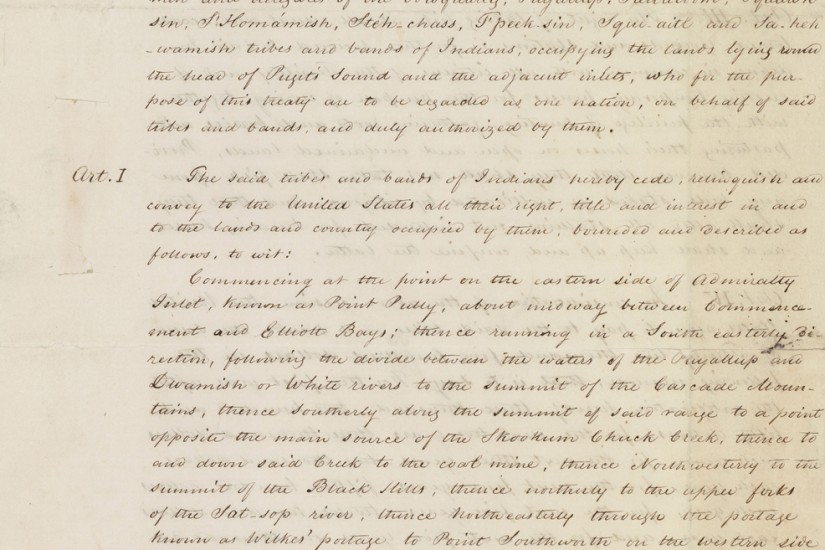 men and delegates of the Nisqually, Puyallup, Steilacoom, Squawk-
sin, S'Homámish, Stéh-chass, T'peek-sin, Squi-aitl and Sa-heh
-wamish tribes and bands of Indians, occupying the lands lying round
the head of Puget's Sound and the adjacent inlets, who for the pur-
pose of this treaty are to be regarded as one nation, on behalf of said
tribes and bands, and duly authorized by them.
Art. I The said tribes and bands of Indians hereby cede, relinquish and
convey to the United States all their right, title and interest in and
to the lands and country occupied by them, bounded and described as
follows, to wit:
Commencing at the point on the eastern side of Admiralty
Inlet, known as Point Pully, about midway between Commence-
ment and Elliott Bays; thence running in a South easterly di-
rection, following the divide between the waters of the Puyallup and
Dwamish or White rivers to the summit of the Cascade Moun-
tains, thence Southerly along the summit of said range to a point
opposite the main source of the Skookum Chuck Creek, thence to
and down said Creek to the coal mine, thence Northwesterly to the
summit of the Black Hills, thence northerly to the upper forks
of the Sat-sop river, thence Northeasterly through the portage
known as Wilkes' portage to Point Southworth on the western side